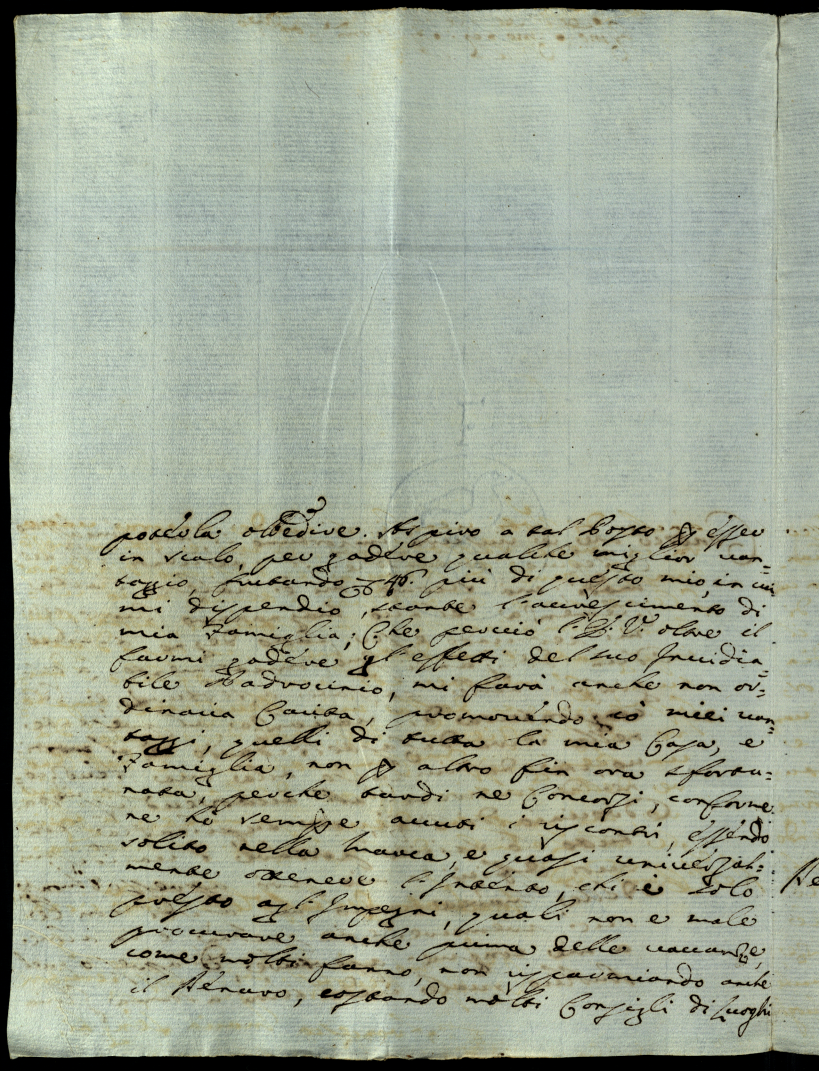 poterla obbedire. Aspiro a tal Posto p esser
in scalo, per godere qualche miglior van=
taggio, fruttando 46 più di questo mio, in cui
mi dispendio, stante l'accrescimento di
mia Famiglia; Che perciò l' oltre il
farmi godere gl'effetti del suo Invidia=
bile Padrocinio, mi farà anche non or=
dinaria Carità, promovendo cò miei van=
taggi, quelli di tutta la mia Casa, e
Famiglia, non p altro fin ora sfortu=
nata, perche tardi ne Concorsi, conforme
ne hò sempre avuti i riscontri, essendo
solito nella Marca, e quasi universal=
mente ottenere l'Intento, chi è solo
presto agl'Impegni, quali non e male
procurare anche prima delle vacanze,
come molti fanno, non risparmiando anche
il Denaro, costando molti Consigli di Luoghi